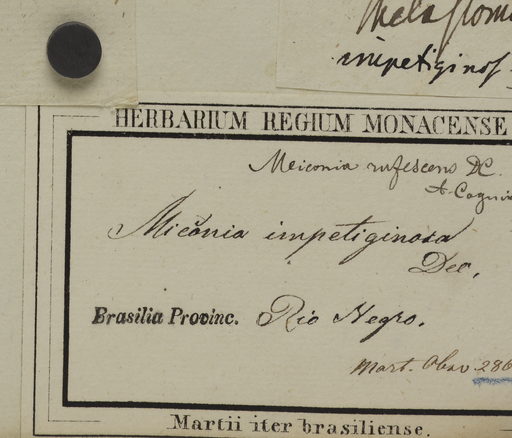 Melastoma
impetiginos
HERBARIUM REGIUM MONACENSE
Miconia rufescens DC.
A. Cogniau
Miconia impetiginosa
Dec.
Brasilia Provinc. Rio Negro.
Mart. Obsv. 286
Martii iter brasiliense.